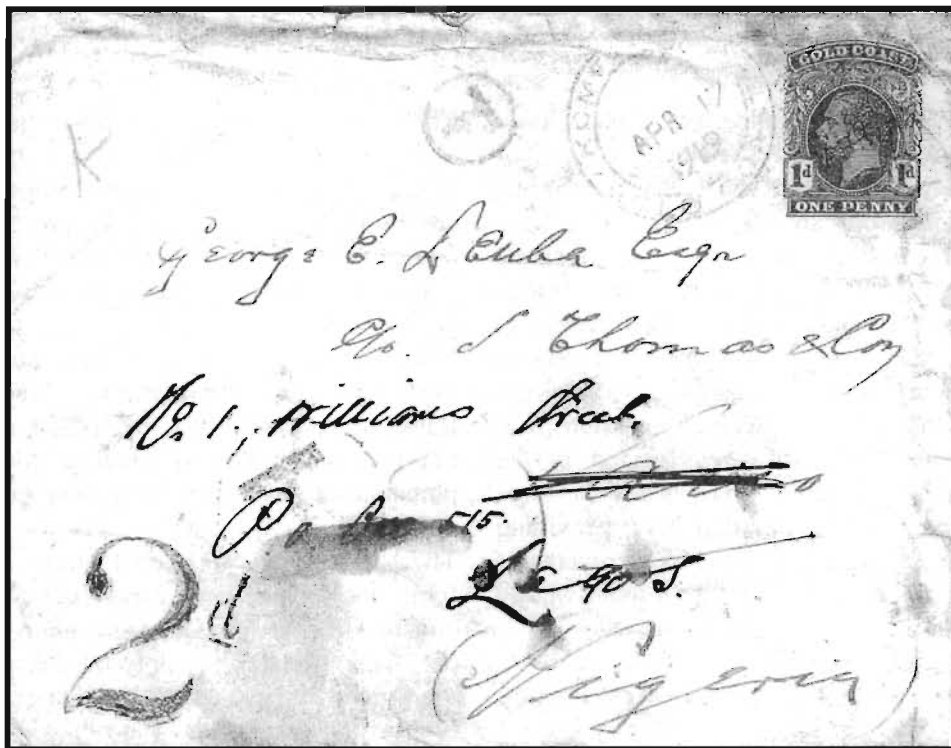 GOLD COAST
1d 1d
ONE PENNY
APR 17
K
George E. Euba Esqr
c/o. S Thomas & Coy
No. 1., Williams Street.
15.
Lagos.
2d
Nigeria